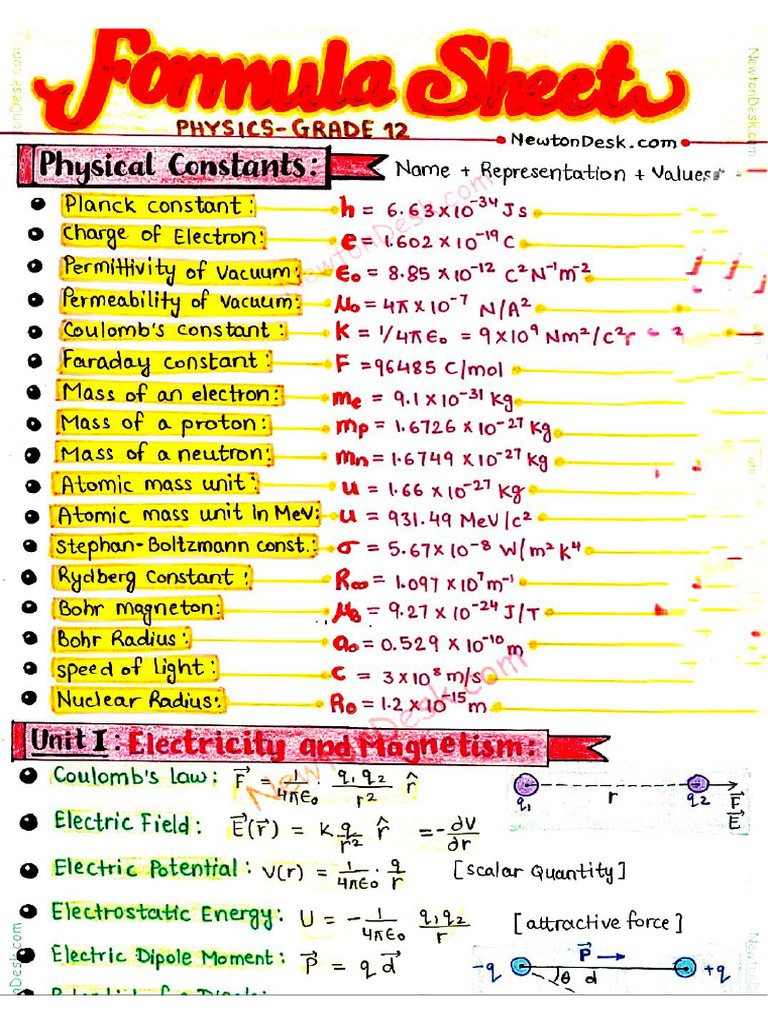 Formula Sheet
PHYSICS-GRADE 12
NewtonDesk.com
Physical Constants: Name + Representation + Values
Planck constant: h = 6.63×10⁻³⁴ Js
Charge of Electron: e = 1.602 × 10⁻¹⁹ C
Permittivity of Vacuum: ϵ₀ = 8.85 × 10⁻¹² C²N⁻¹m⁻²
Permeability of Vacuum: μ₀ = 4π × 10⁻⁷ N/A²
Coulomb's constant: K = 1/4πϵ₀ = 9 × 10⁹ Nm²/C²
Faraday constant: F = 96485 C/mol
Mass of an electron: me = 9.1 × 10⁻³¹ Kg
Mass of a proton: mp = 1.6726 × 10⁻²⁷ Kg
Mass of a neutron: mn = 1.6749 × 10⁻²⁷ Kg
Atomic mass unit: u = 1.66 × 10⁻²⁷ Kg
Atomic mass unit In MeV: u = 931.49 MeV/c²
Stephan-Boltzmann const.: σ = 5.67×10⁻⁸ W/m² K⁴
Rydberg Constant: R∞ = 1.097 × 10⁷ m⁻¹
Bohr magneton: μB = 9.27 × 10⁻²⁴ J/T
Bohr Radius: a₀ = 0.529 × 10⁻¹⁰ m
speed of light: c = 3×10⁸ m/s
Nuclear Radius: R₀ = 1.2 × 10⁻¹⁵ m
Unit I: Electricity and Magnetism:
Coulomb's Law: F⃗ = 1/4πϵ₀ · q₁q₂/r² r̂
q₁ r q₂ F⃗
E⃗
Electric Field: E⃗(r⃗) = K q/r² r̂ = -∂V/∂r
Electric Potential: V(r) = 1/4πϵ₀ · q/r [scalar Quantity]
Electrostatic Energy: U = - 1/4πϵ₀ q₁q₂/r [attractive force]
Electric Dipole Moment: P⃗ = q d⃗
P⃗
-q θ d +q
NewtonDesk.com
NewtonDesk.com
NewtonDesk.com
NewtonDesk.com